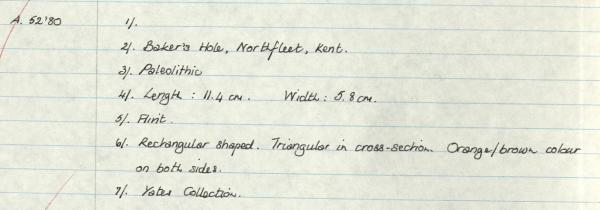 A. 52'80 1/.
2/. Baker's Hole, Northfleet, Kent.
3/. Paleolithic
4/. Length : 11.4 cm. Width : 5.8 cm.
5/. Flint.
6/. Rectangular shaped. Triangular in cross-section. Orange/brown colour
on both sides.
7/. Yates Collection.